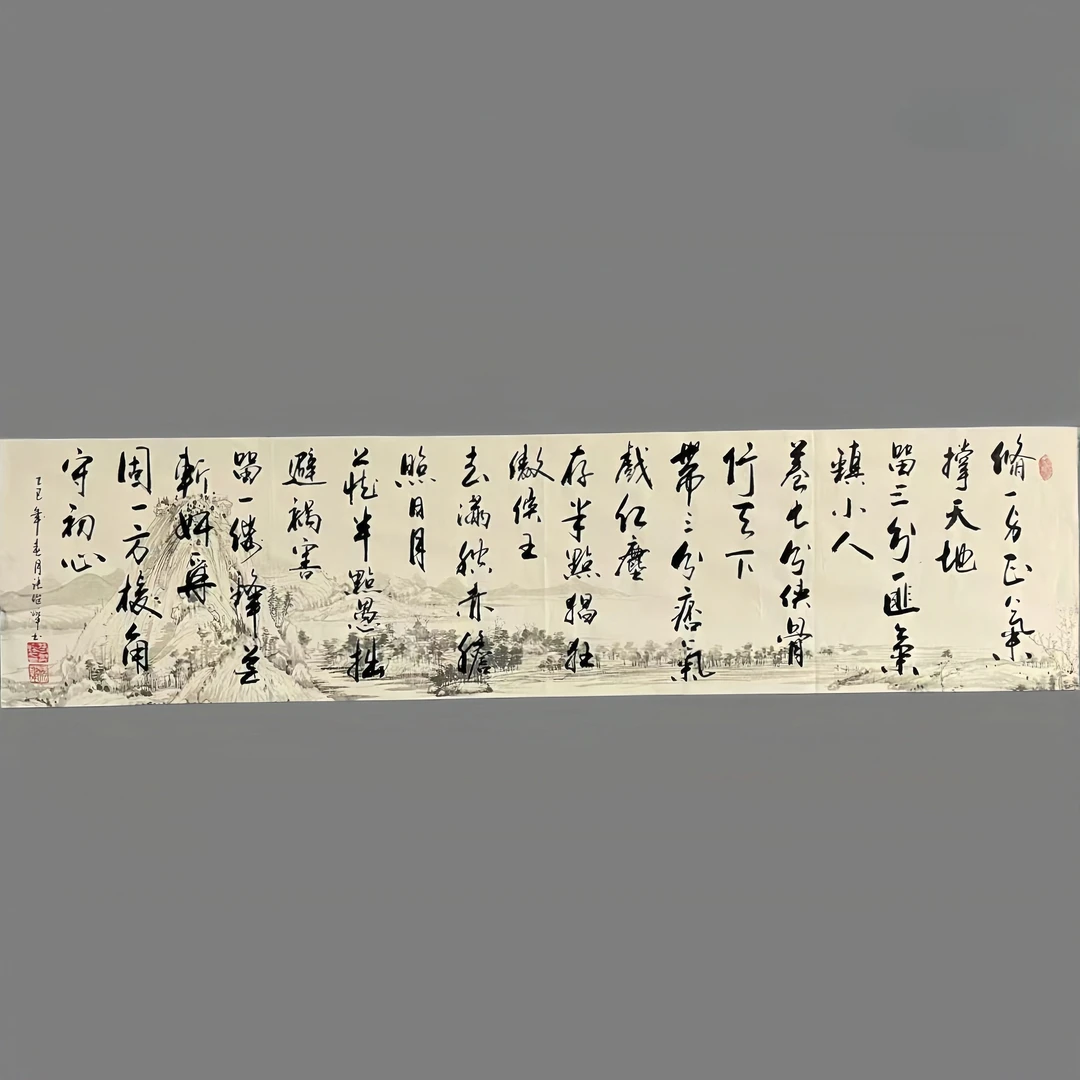 脩一身正氣
撐天地
留三分匪氣
鎮小人
養七分俠骨
行天下
帶三分痞氣
戲紅塵
存半點猖狂
傲侯王
滿腔赤膽
照日月
藏半點愚拙
避禍害
留一縷鋒芒
斬奸
固一方棱角
守初心
乙巳年春月